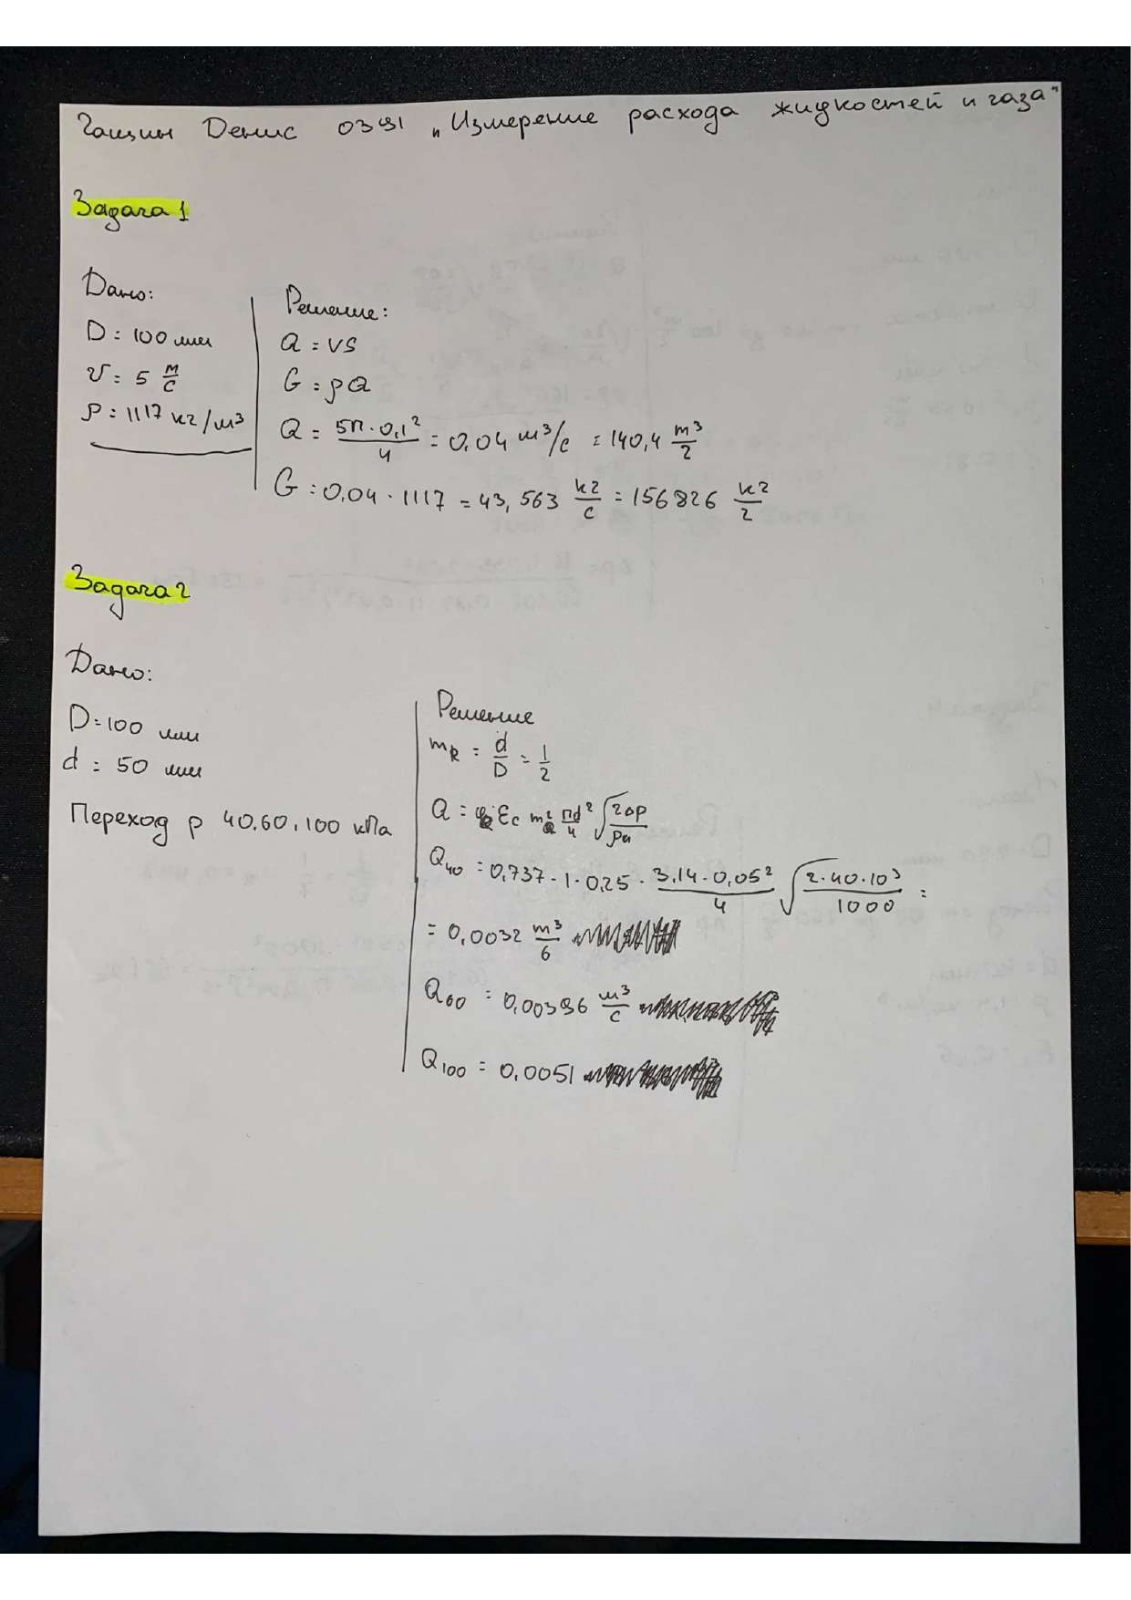 Гащин Денис 0391 „Измерение расхода жидкостей и газа"
Задача 1
Дано:
D = 100 мм
v = 5 м/с
ρ = 1117 кг/м³
Решение:
Q = vS
G = ρQ
Q = 5π · 0,1² / 4 = 0,04 м³/с = 140,4 м³/г
G = 0,04 · 1117 = 43,563 кг/с = 156826 кг/г
Задача 2
Дано:
D = 100 мм
d = 50 мм
Переход p 40.60.100 кПа
Решение
m = d/D = 1/2
Q = Ec m² πd²/4 √(2Δp/ρ)
Q₄₀ = 0,737 · 1 · 0,25 · 3.14 · 0,05² / 4 √(2·40·10³ / 1000) =
= 0,0032 м³/б
Q₆₀ = 0,00396 м³/с
Q₁₀₀ = 0,0051